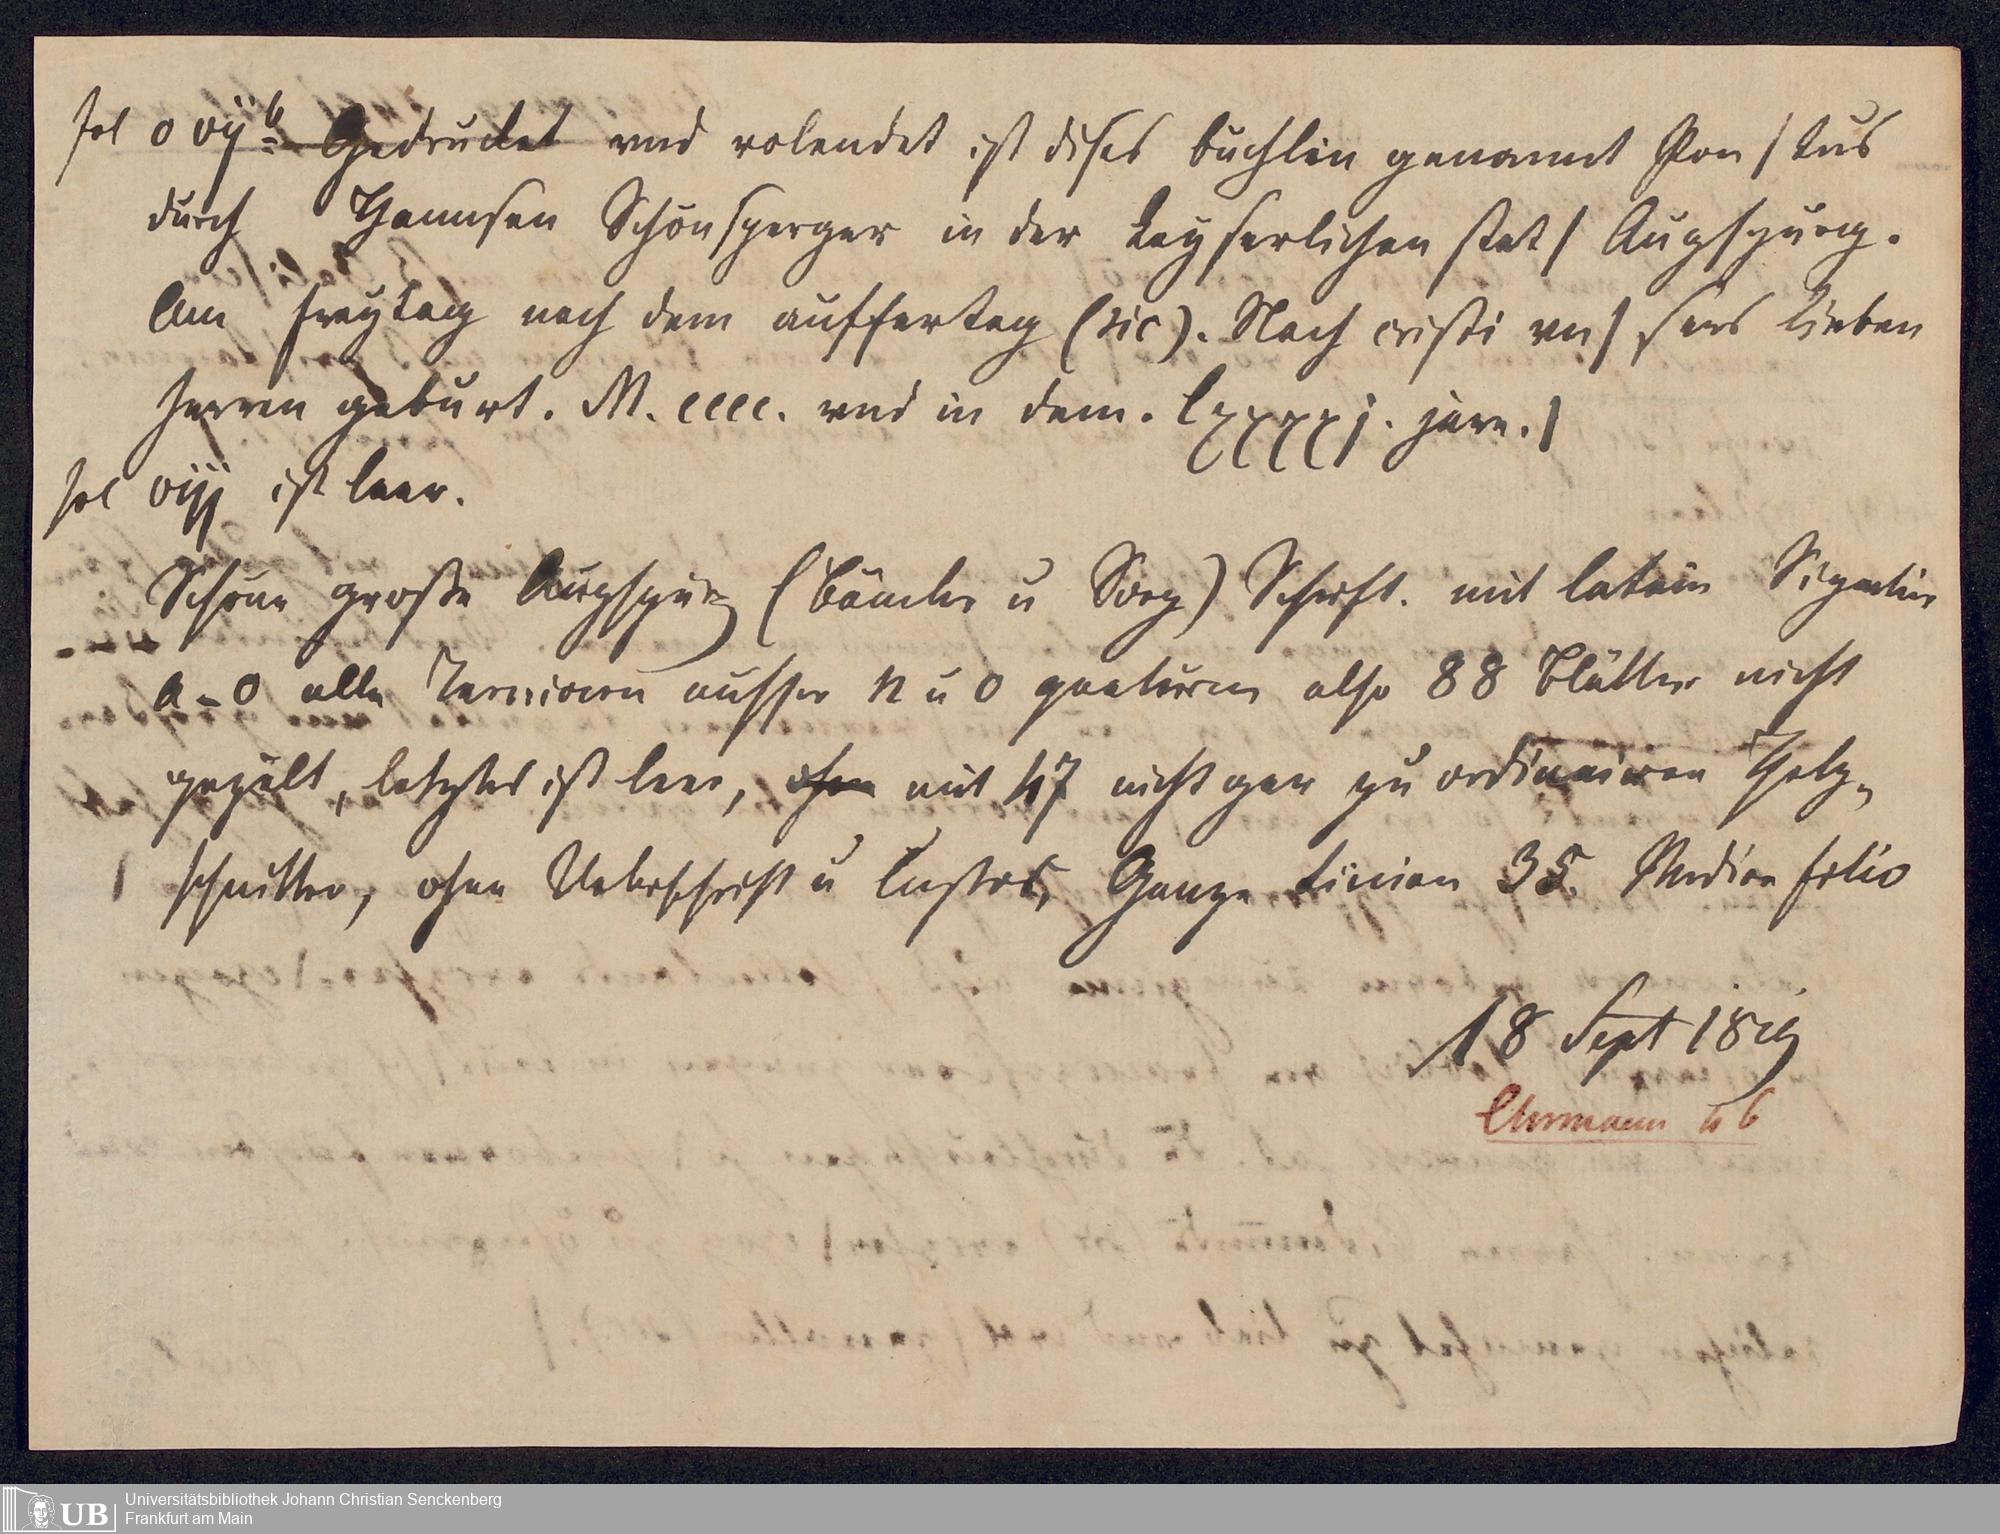 fol o vij b Gedrucket vnd volendet ist dises büchlin genannt Pon / tus
durch Hannsen Schönsperger in der keyserlichen stat / Augspurg.
Am freytag nach dem auffertag (sic). Nach cristi vn / sers lieben
herren geburt. M. cccc. vnd in dem. lxxxxj. jare. /
fol viij ist leer.
Schöne große Augspurg (Bämler u Sorg) Schrift. mit latein Signatur
a-o alle Ternionen ausser n u o quaternen also 88 Blätter nicht
gezält, letztes ist leer, ohne mit 47 nicht gar zu ordinairen Holz-
schnitten, ohne Ueberschrift u Custos, Ganze Linien 35. Median folio
18 Sept 1819
Ehrmann 46
UB
Universitätsbibliothek Johann Christian Senckenberg
Frankfurt am Main